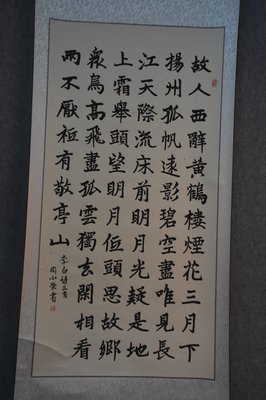 故人西辭黃鶴樓煙花三月下
揚州孤帆遠影碧空盡唯見長
江天際流床前明月光疑是地
上霜舉頭望明月低頭思故鄉
衆鳥高飛盡孤雲獨去閑相看
兩不厭衹有敬亭山
李白詩三首
周小榮書